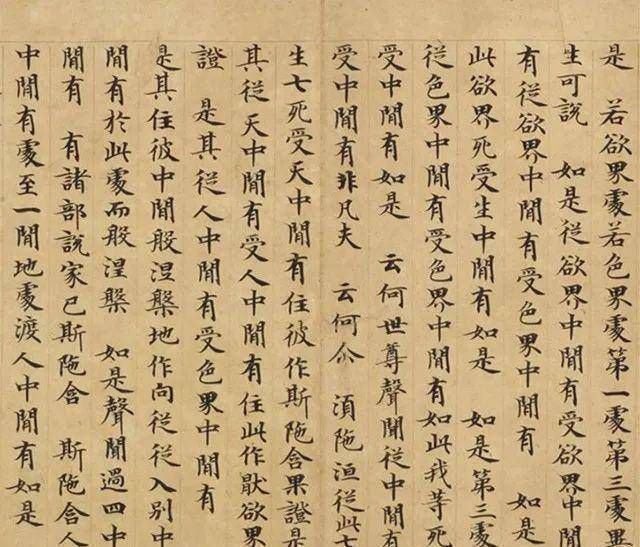 是　若欲界處若色界處第一處第三處異
生可說　如是従欲界中閒有受欲界中閒
有従欲界中閒有受色界中閒有　如是
此欲界死受生中閒有如是　如是第三處
従色界中閒有受色界中閒有如此我等死
受中閒有如是　云何世尊聲聞従中閒有
受中閒有非凡夫　云何尒　須陁洹従此七
生七死受天中閒有住彼作斯陁含果證是
其従天中閒有受人中閒有住此作猒欲界
證　是其従人中閒有受色界中閒有
是其住彼中閒般涅槃地作向従従入別中
閒有於此處而般涅槃　如是聲聞過四中
閒有　有諸部說家已斯陁含　斯陁含人
中閒有處至一閒地處渡人中閒有如是